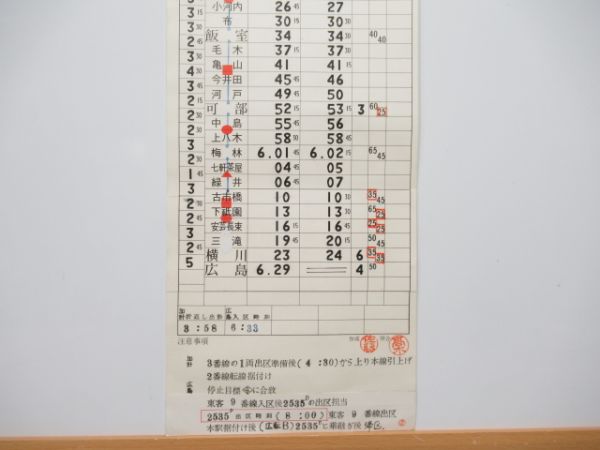 3 小河内 26 45 27
2 30 布 30 15 30 30
3 飯室 34 34 30 40 40
2 45 毛木 37 15 37 30
3 30 亀山 41 41 15
3 45 今井田 45 45 46
3 河戸 49 45 50
2 30 可部 52 15 53 15 3 60 25
2 45 中島 55 45 56
2 45 上八木 58 30 58 45
2 梅林 6.01 45 6.02 15 65 45
1 45 七軒茶屋 04 45 05
3 緑井 06 45 07
3 古市橋 10 10 30 35 45
2 30 下祇園 13 13 30 65 25
3 安芸長束 16 15 16 45 25 25
2 45 三滝 19 45 20 15 50 45
5 横川 23 24 6 35 35
広島 6.29 4 50
加計 折返し出発 広島 入区時刻
3:58 6:33
注意事項
加計 3番線の1両出区準備後(4:30)から上り本線引上げ
2番線転線据付け
広島 停止目標 に会放
東客9番線入区後2535Dの出区担当
2535D出区時刻(8:00)東客9番線出区
本駅据付け後(広転B)2535Dに乗継ぎ後